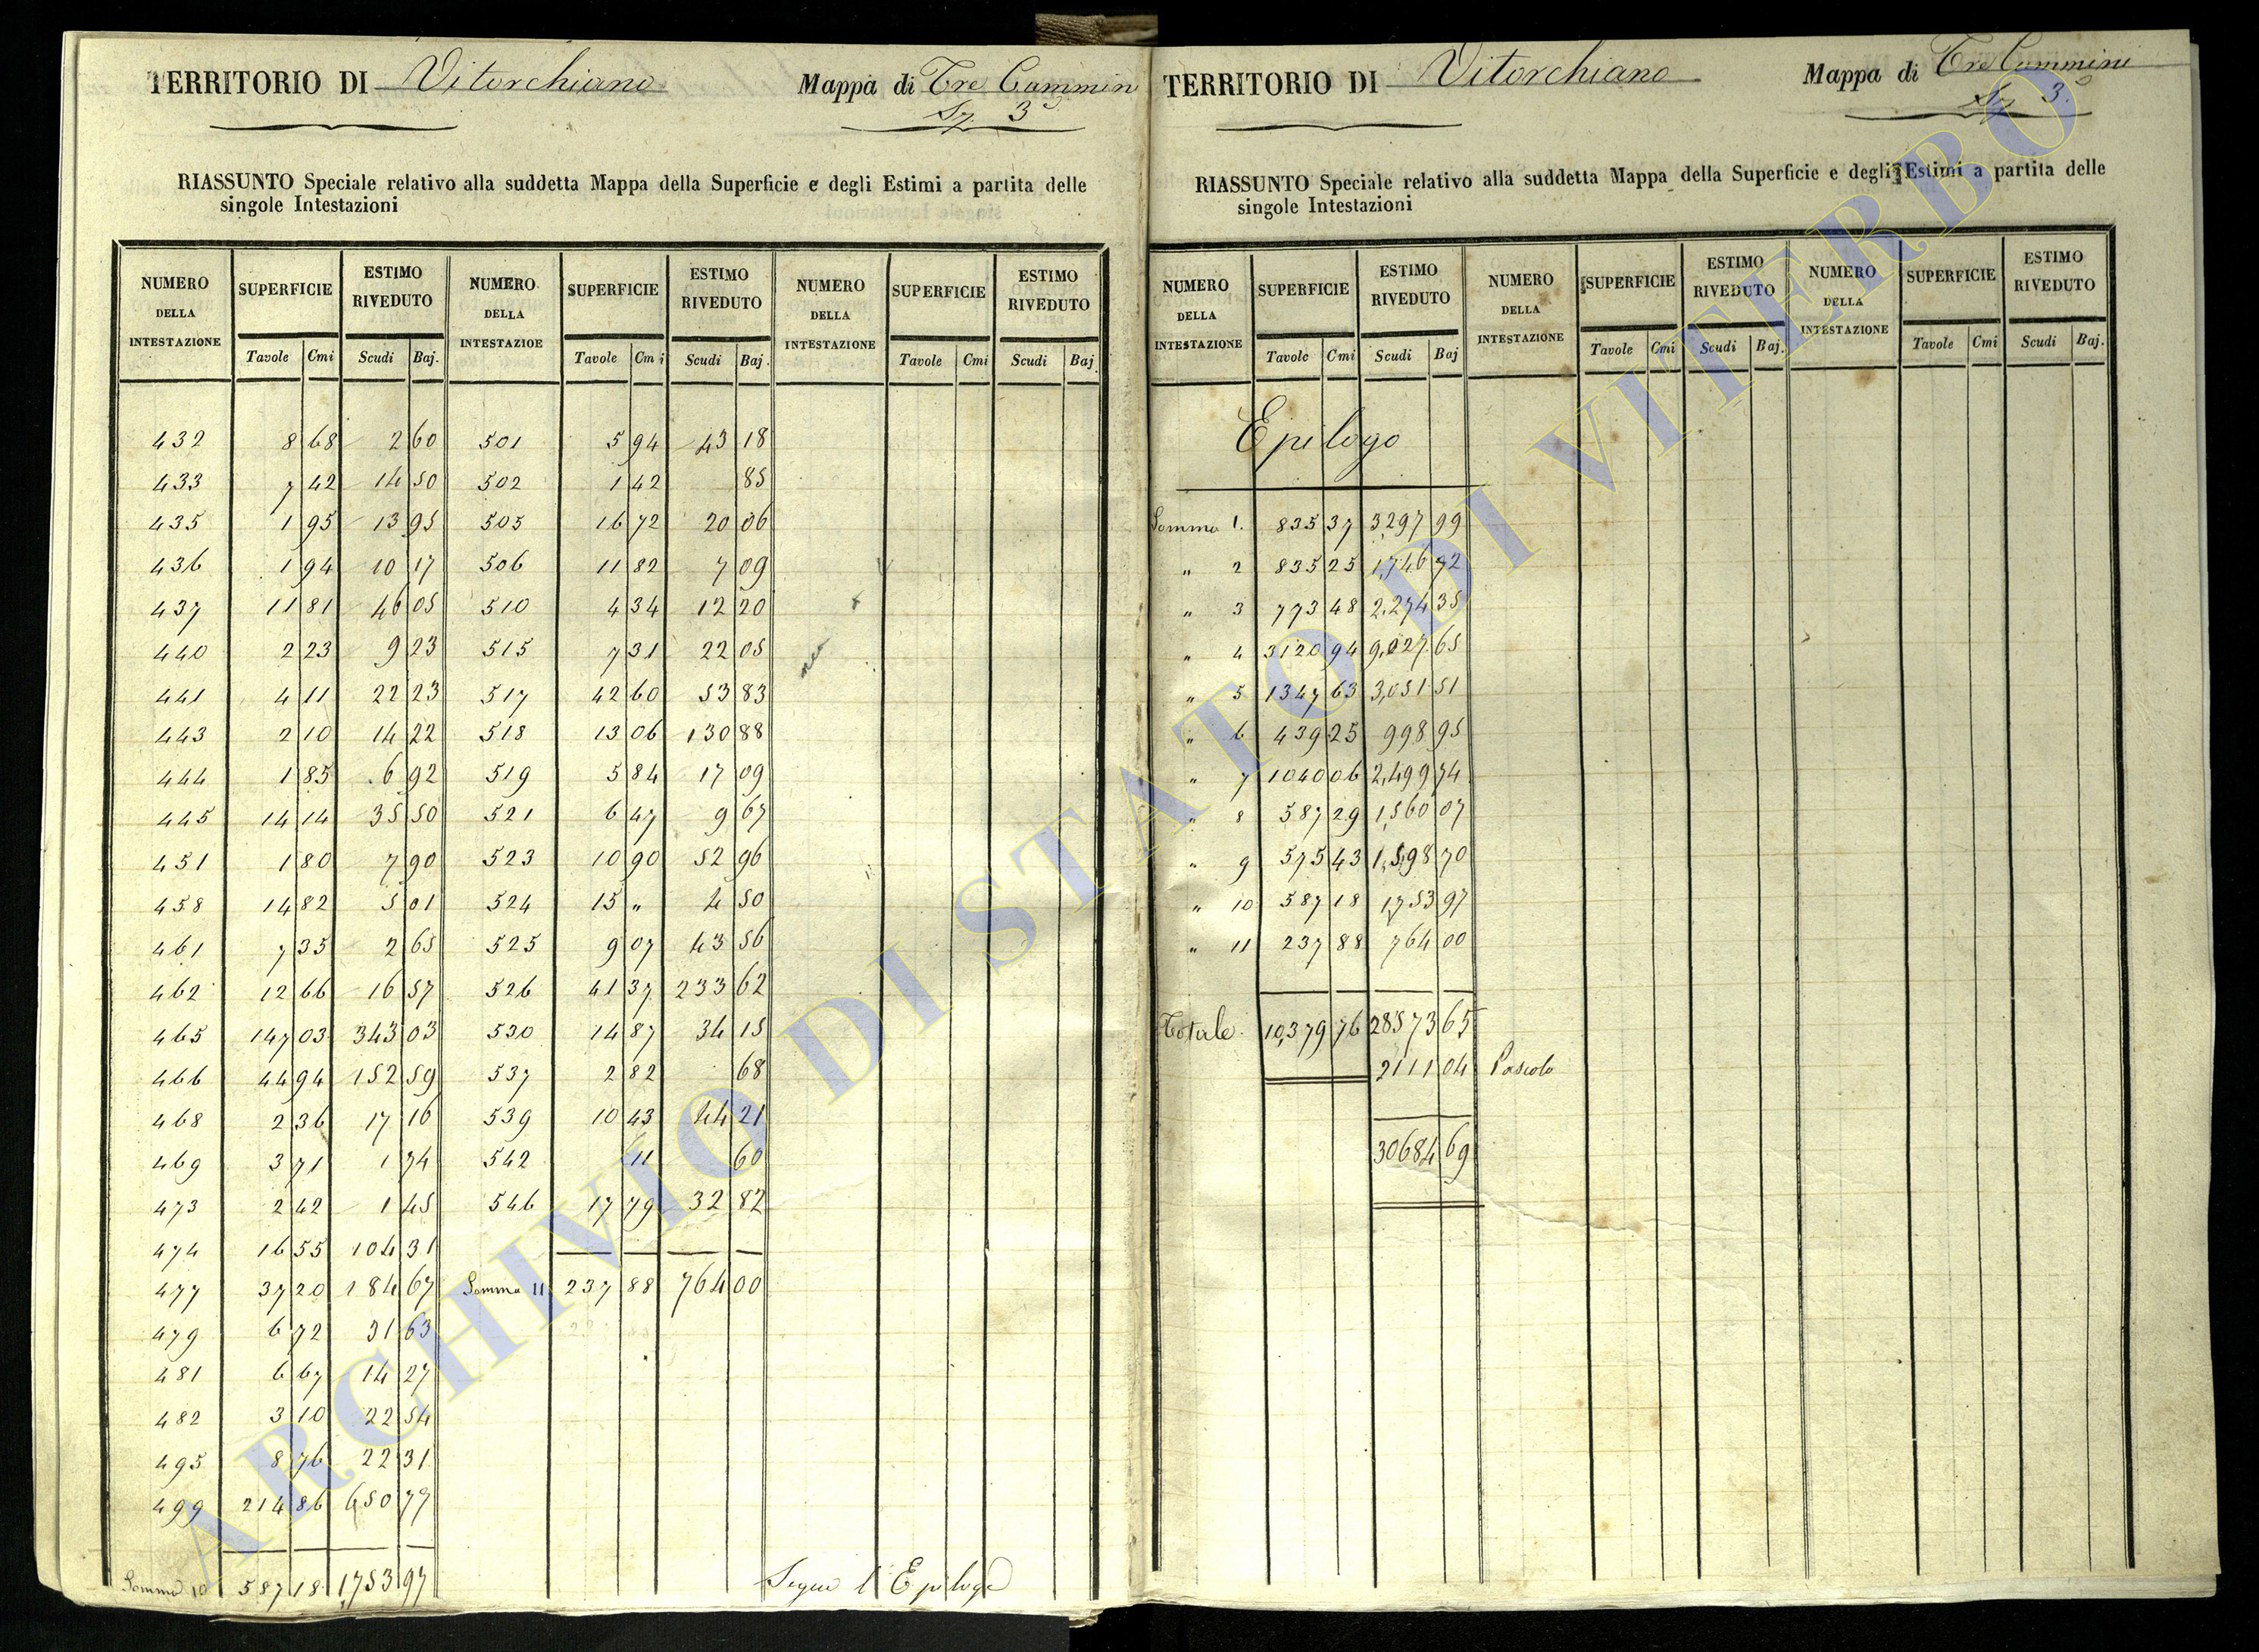 TERRITORIO DI Vitorchiano Mappa di Tre Cammin
Sz. 3ª
RIASSUNTO Speciale relativo alla suddetta Mappa della Superficie e degli Estimi a partita delle
singole Intestazioni
NUMERO DELLA INTESTAZIONE SUPERFICIE ESTIMO RIVEDUTO NUMERO DELLA INTESTAZIOE SUPERFICIE ESTIMO RIVEDUTO NUMERO DELLA INTESTAZIONE SUPERFICIE ESTIMO RIVEDUTO
Tavole Cmi Scudi Baj. Tavole Cmi Scudi Baj. Tavole Cmi Scudi Baj.
432 8 68 2 60 501 5 94 43 18
433 7 42 14 50 502 1 42 85
435 1 95 13 95 505 16 72 20 06
436 1 94 10 17 506 11 82 7 09
437 11 81 46 05 510 4 34 12 20
440 2 23 9 23 515 7 31 22 05
441 4 11 22 23 517 42 60 53 83
443 2 10 14 22 518 13 06 130 88
444 1 85 6 92 519 5 84 17 09
445 14 14 35 50 521 6 47 9 67
451 1 80 7 90 523 10 90 52 96
458 14 82 5 01 524 15 „ 4 50
461 7 35 2 65 525 9 07 43 56
462 12 66 16 57 526 41 37 233 62
465 147 03 343 03 530 14 87 34 15
466 44 94 152 59 537 2 82 68
468 2 36 17 16 539 10 43 44 21
469 3 71 1 74 542 11 60
473 2 42 1 45 546 17 79 32 82
474 16 55 104 31
477 37 20 184 67 Somma 11 237 88 764 00
479 6 72 31 63
481 6 67 14 27
482 3 10 22 54
495 8 76 22 31
499 214 86 650 77
Somma 10 587 18 1,753 97 Segue l'Epilogo
TERRITORIO DI Vitorchiano Mappa di Tre Cammini
Sz. 3ª
RIASSUNTO Speciale relativo alla suddetta Mappa della Superficie e degli Estimi a partita delle
singole Intestazioni
NUMERO DELLA INTESTAZIONE SUPERFICIE ESTIMO RIVEDUTO NUMERO DELLA INTESTAZIONE SUPERFICIE ESTIMO RIVEDUTO NUMERO DELLA INTESTAZIONE SUPERFICIE ESTIMO RIVEDUTO
Tavole Cmi Scudi Baj Tavole Cmi Scudi Baj. Tavole Cmi Scudi Baj.
Epilogo
Somma 1. 835 37 3297 99
„ 2 835 25 1,746 72
„ 3 773 48 2,274 35
„ 4 3120 94 9,027 65
„ 5 1347 63 3,051 51
„ 6 439 25 998 95
„ 7 1040 06 2,499 74
„ 8 587 29 1,560 07
„ 9 575 43 1,598 70
„ 10 587 18 1,753 97
„ 11 237 88 764 00
Totale 10,379 76 28573 65
2111 04 Pascolo
30684 69
ARCHIVIO DI STATO DI VITERBO